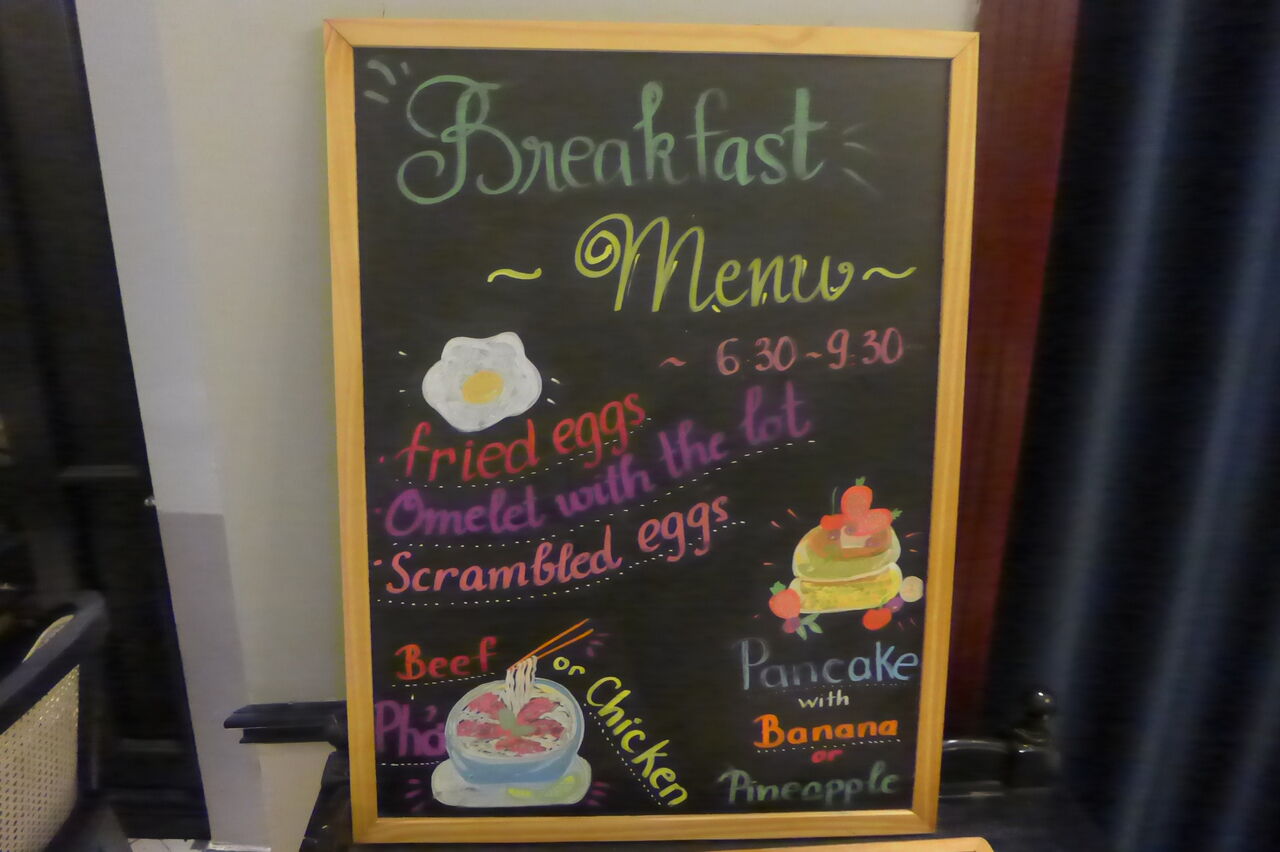 Breakfast
~ Menu ~
~ 6:30 ~ 9:30
· fried eggs
· Omelet with the lot
· Scrambled eggs
Beef or Chicken
Phở
Pancake
with
Banana
or
Pineapple